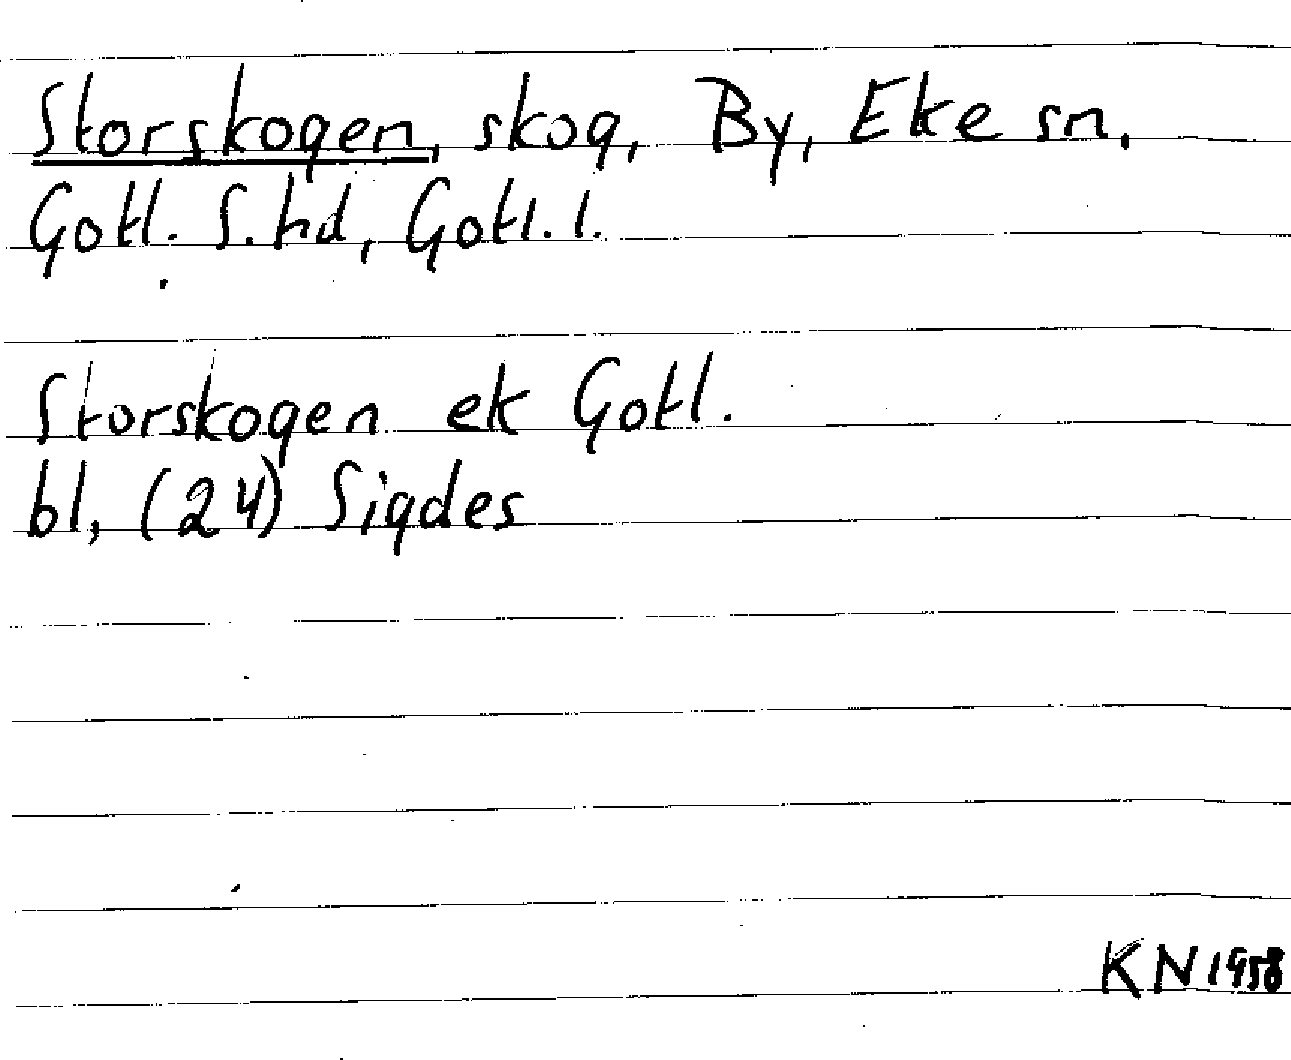 Storskogen, skog, By, Eke sn,
Gotl. S. hd, Gotl. l.
Storskogen ek Gotl.
bl, (24) Sigdes
KN 1958